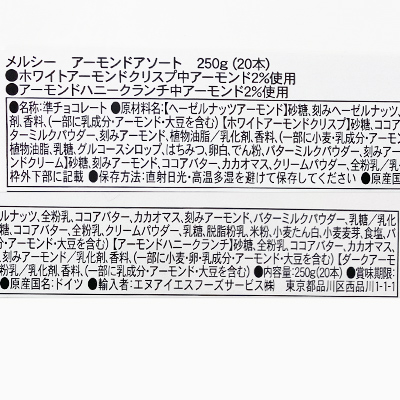 メルシー アーモンドアソート 250g(20本)
●ホワイトアーモンドクリスプ中アーモンド2%使用
●アーモンドハニークランチ中アーモンド2%使用
●名称:準チョコレート ●原材料名:【ヘーゼルナッツアーモンド】砂糖、刻みヘーゼルナッツ、
剤、香料、(一部に乳成分・アーモンド・大豆を含む)【ホワイトアーモンドクリスプ】砂糖、ココア
ターミルクパウダー、刻みアーモンド、植物油脂/乳化剤、香料、(一部に小麦・乳成分・アーモンド
植物油脂、乳糖、グルコースシロップ、はちみつ、卵白、でん粉、バターミルクパウダー、刻みアーモン
ンドクリーム】砂糖、刻みアーモンド、ココアバター、カカオマス、クリームパウダー、全粉乳/乳
枠外下部に記載 ●保存方法:直射日光・高温多湿を避けて保存してください ●原産国
ルナッツ、全粉乳、ココアバター、カカオマス、刻みアーモンド、バターミルクパウダー、乳糖/乳化
バター、全粉乳、クリームパウダー、乳糖、脱脂粉乳、米粉、小麦たん白、小麦麦芽、食塩、バ
分・アーモンド・大豆を含む)【アーモンドハニークランチ】砂糖、全粉乳、ココアバター、カカオマス、
刻みアーモンド/乳化剤、香料、(一部に小麦・卵・乳成分・アーモンド・大豆を含む)【ダークアーモ
粉乳/乳化剤、香料、(一部に乳成分・アーモンド・大豆を含む) ●内容量:250g(20本) ●賞味期限:
●原産国名:ドイツ ●輸入者:エヌアイエスフーズサービス㈱ 東京都品川区西品川1-1-1